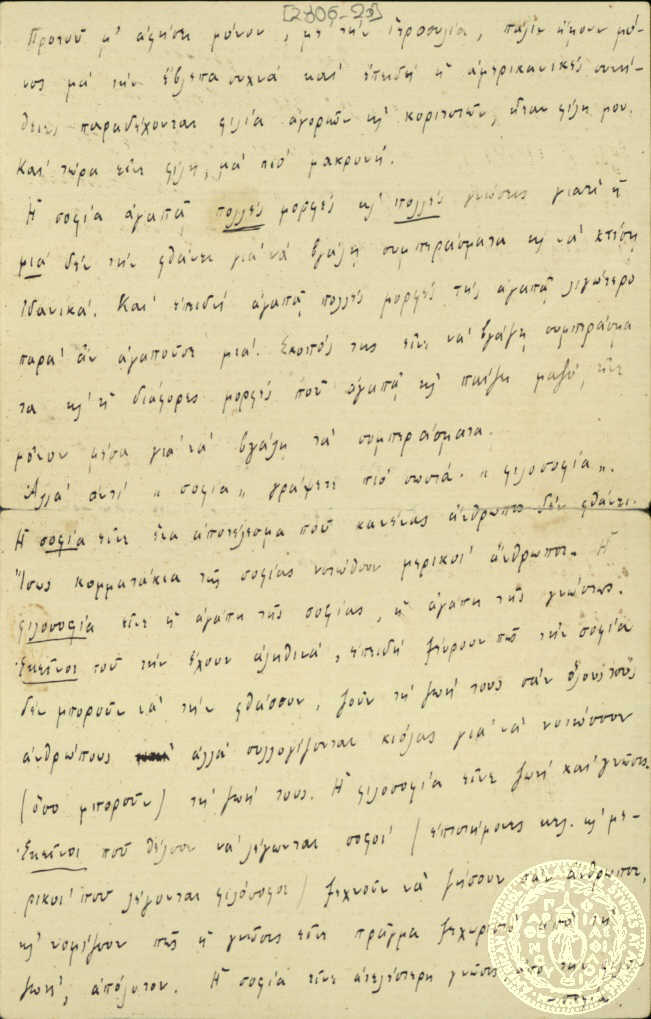 [2806-23]
Προτοῦ μ' ἀφήσει μόνον, μὲ τὴν , πάλι ἤμουν μό-
νος μὰ τὴν ἔβλεπα συχνὰ καὶ ἐπειδὴ ἡ ἀμερικανικὲς συνή-
θειες παραδέχονται φιλία ἀγοριῶν κι' κοριτσιῶν, ἦταν φίλη μου.
Καὶ τώρα εἶνε φίλη, μὰ πιὸ μακρυνή.
Ἡ σοφία ἀγαπᾷ πολλὲς μορφὲς κι' πολλὲς γνώσεις γιατὶ ἡ
μιὰ δὲν τὴν φθάνει γιὰ νὰ βγάλῃ συμπεράσματα κι νὰ κτίσῃ
ἰδανικά. Καὶ ἐπειδὴ ἀγαπᾷ πολλὲς μορφὲς τὶς ἀγαπᾷ λιγώτερο
παρὰ ἂν ἀγαποῦσε μιά. Σκοπός της εἶνε νὰ βγάλῃ συμπεράσμα
τα κι' ἡ διάφορες μορφὲς ποῦ ἀγαπᾷ κι παίζει μαζύ, εἶνε
μόνον μέσα γιὰ νὰ βγάλῃ τὰ συμπεράσματα.
Ἀλλὰ ἀντὶ „ σοφία „ γράψετε πιὸ σωστά. „ φιλοσοφία „.
Ἡ σοφία εἶνε ἕνα ἀποτέλεσμα ποῦ κανένας ἄνθρωπος δὲν φθάνει.
Ἴσως κομματάκια τῆς σοφίας νοιώθουν μερικοὶ ἄνθρωποι. Ἡ
φιλοσοφία εἶνε ἡ ἀγάπη τῆς σοφίας, ἡ ἀγάπη τῆς γνώσεως.
Ἐκεῖνοι ποῦ τὴν ἔχουν ἀληθινά, ἐπειδὴ ξεύρουν πῶς τὴν σοφία
δὲν μποροῦν νὰ τὴν φθάσουν, ζοῦν τὴ ζωή τους σὰν ὅλους τοὺς
ἀνθρώπους ἀλλὰ συλλογίζονται κιόλας γιὰ νὰ νοιώσουν
(ὅσο μποροῦν) τὴ ζωή τους. Ἡ φιλοσοφία εἶνε ζωὴ καὶ γνῶσις.
Ἐκεῖνοι ποῦ θέλουν νὰ λέγωνται σοφοὶ (ἐπιστήμονες κτλ. κι' με-
ρικοὶ ποῦ λέγονται φιλόσοφοι) ξεχνοῦν νὰ ζήσουν σὰν ἄνθρωποι,
κι' νομίζουν πῶς ἡ γνῶσις εἶνε πρᾶγμα ξεχωριστὸ ἀπὸ τὴ
ζωή, ἀπόλυτον. Ἡ σοφία εἶνε ἀτελέστερη γνῶσις ἀπὸ τὴν φιλο-
σοφία